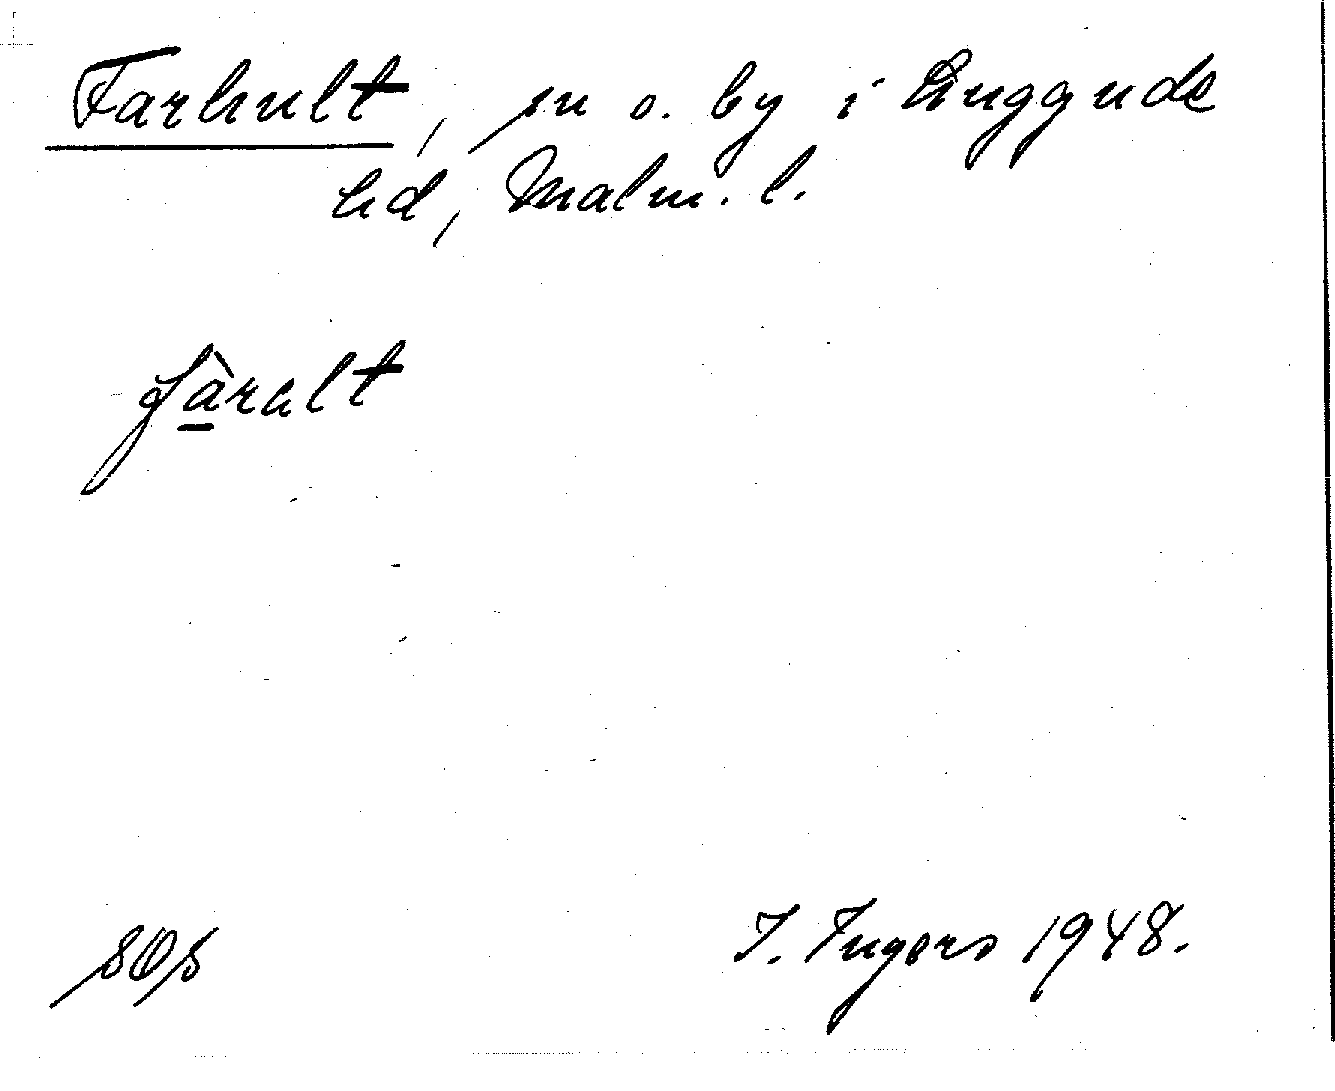 Farhult, sn o. by i Luggude
hd, Malm. l.
fàralt
I. Ingers 1948.